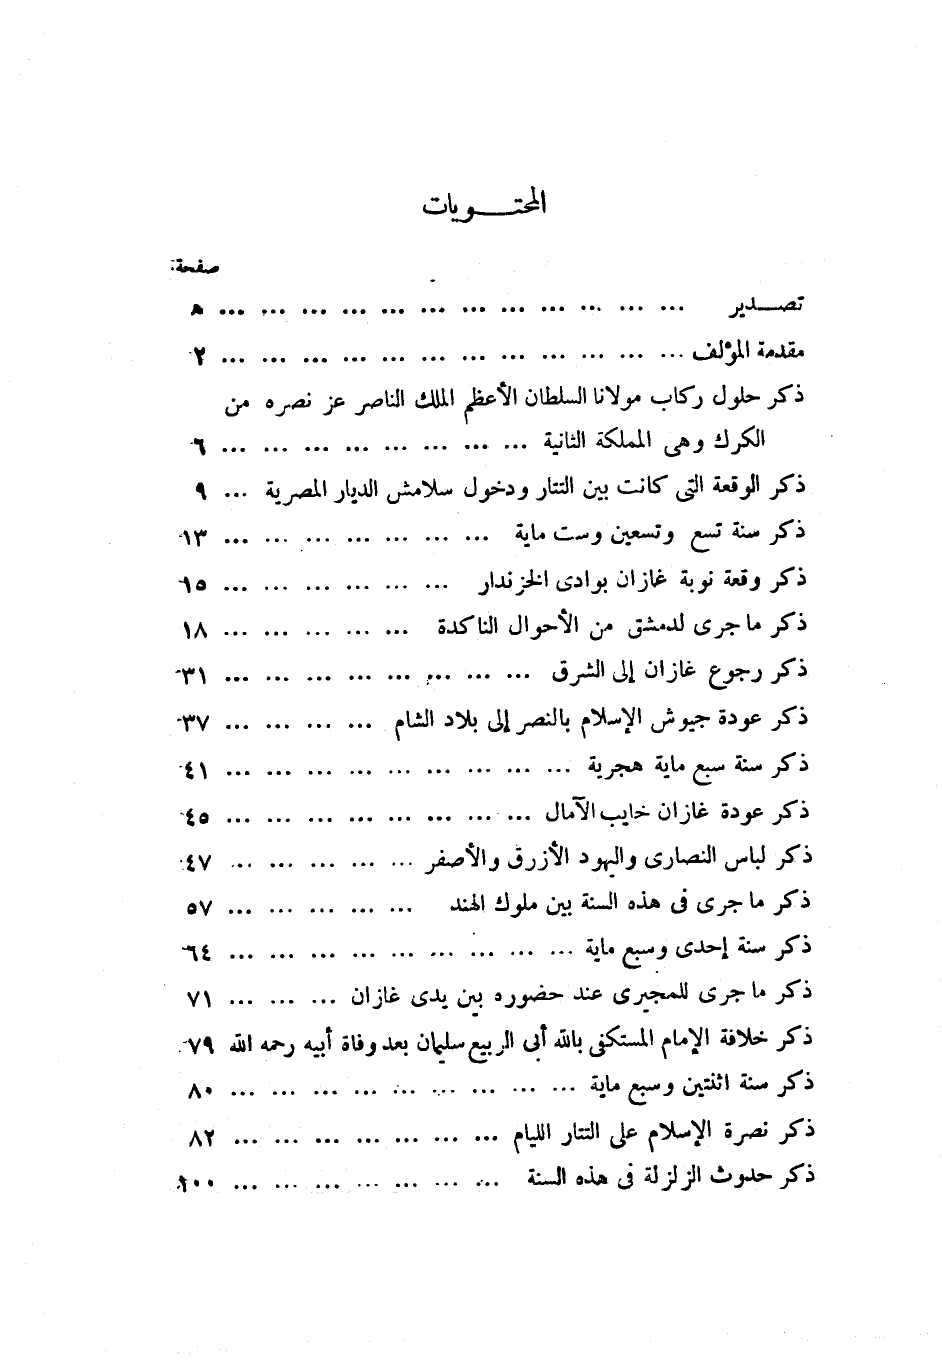 المحتـــويات
صفحة
تصـــدير ... ... ... ... ... ... ... ... ... ... ... ... ه
مقدمة المؤلف ... ... ... ... ... ... ... ... ... ... ... ... ٢
ذكر حلول ركاب مولانا السلطان الأعظم الملك الناصر عز نصره من
الكرك وهى المملكة الثانية ... ... ... ... ... ... ... ... ٦
ذكر الوقعة التى كانت بين التتار ودخول سلامش الديار المصرية ... ٩
ذكر سنة تسع وتسعين وست ماية ... ... ... ... ... ... ... ١٣
ذكر وقعة نوبة غازان بوادى الخزندار ... ... ... ... ... ... ١٥
ذكر ما جرى لدمشق من الأحوال الناكدة ... ... ... ... ... ١٨
ذكر رجوع غازان إلى الشرق ... ... ... ... ... ... ... ... ٣١
ذكر عودة جيوش الإسلام بالنصر إلى بلاد الشام ... ... ... ... ٣٧
ذكر سنة سبع ماية هجرية ... ... ... ... ... ... ... ... ... ٤١
ذكر عودة غازان خايب الآمال ... ... ... ... ... ... ... ... ٤٥
ذكر لباس النصارى واليهود الأزرق والأصفر ... ... ... ... ... ٤٧
ذكر ما جرى فى هذه السنة بين ملوك الهند ... ... ... ... ... ٥٧
ذكر سنة إحدى وسبع ماية ... ... ... ... ... ... ... ... ... ٦٤
ذكر ما جرى للمجيرى عند حضوره بين يدى غازان ... ... ... ٧١
ذكر خلافة الإمام المستكفى بالله أبى الربيع سليمان بعد وفاة أبيه رحمه الله ٧٩
ذكر سنة اثنتين وسبع ماية ... ... ... ... ... ... ... ... ... ٨٠
ذكر نصرة الإسلام على التتار الليام ... ... ... ... ... ... ... ٨٢
ذكر حدوث الزلزلة فى هذه السنة ... ... ... ... ... ... ... ١٠٠